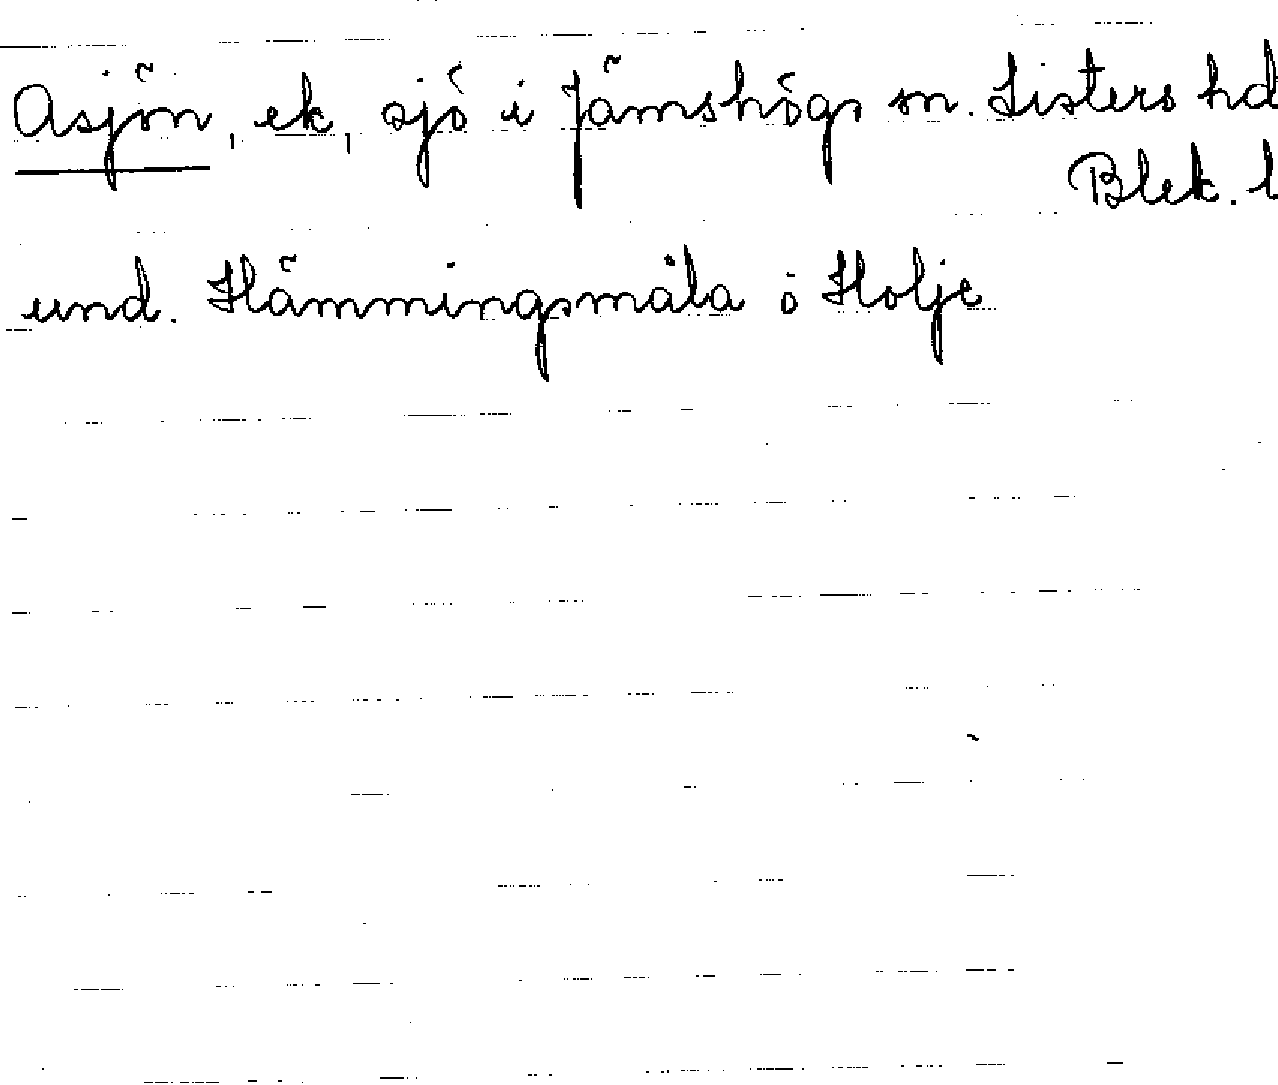 Asjön, ek, sjö i Jämshögs sn. Listers hd
Blek. l
und. Hämmingsmåla ö Holje